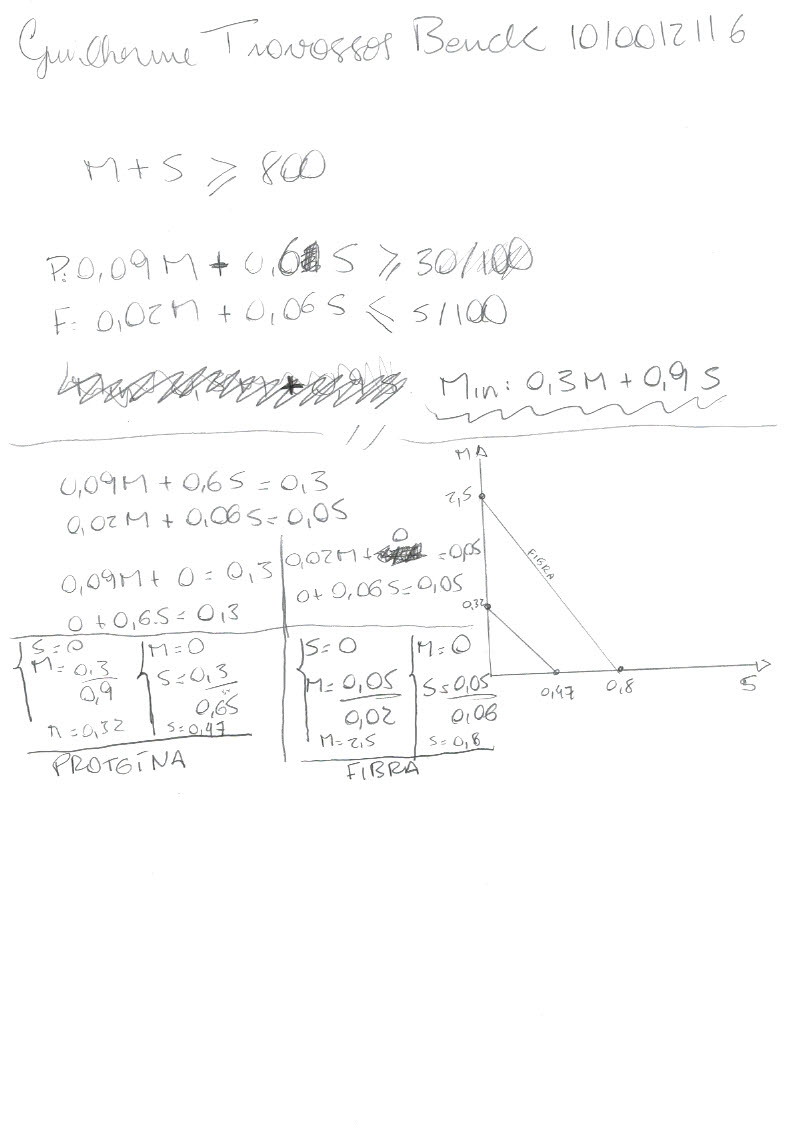 Guilherme Travassos Benck 10/0012116
M + S ≥ 800
P: 0,09 M + 0,6 S ≥ 30/100
F: 0,02 M + 0,06 S ≤ 5/100
Min: 0,3 M + 0,9 S
//
0,09 M + 0,6 S = 0,3
0,02 M + 0,06 S = 0,05
0,09 M + 0 = 0,3
0 + 0,6 S = 0,3
0,02 M + 0 = 0,05
0 + 0,06 S = 0,05
S = 0
M = 0,3/0,9
n = 0,32
M = 0
S = 0,3/0,65
S = 0,47
PROTEÍNA
S = 0
M = 0,05/0,02
M = 2,5
M = 0
S = 0,05/0,06
S = 0,8
FIBRA
M
2,5
FIBRA
0,32
0,47 0,8 S